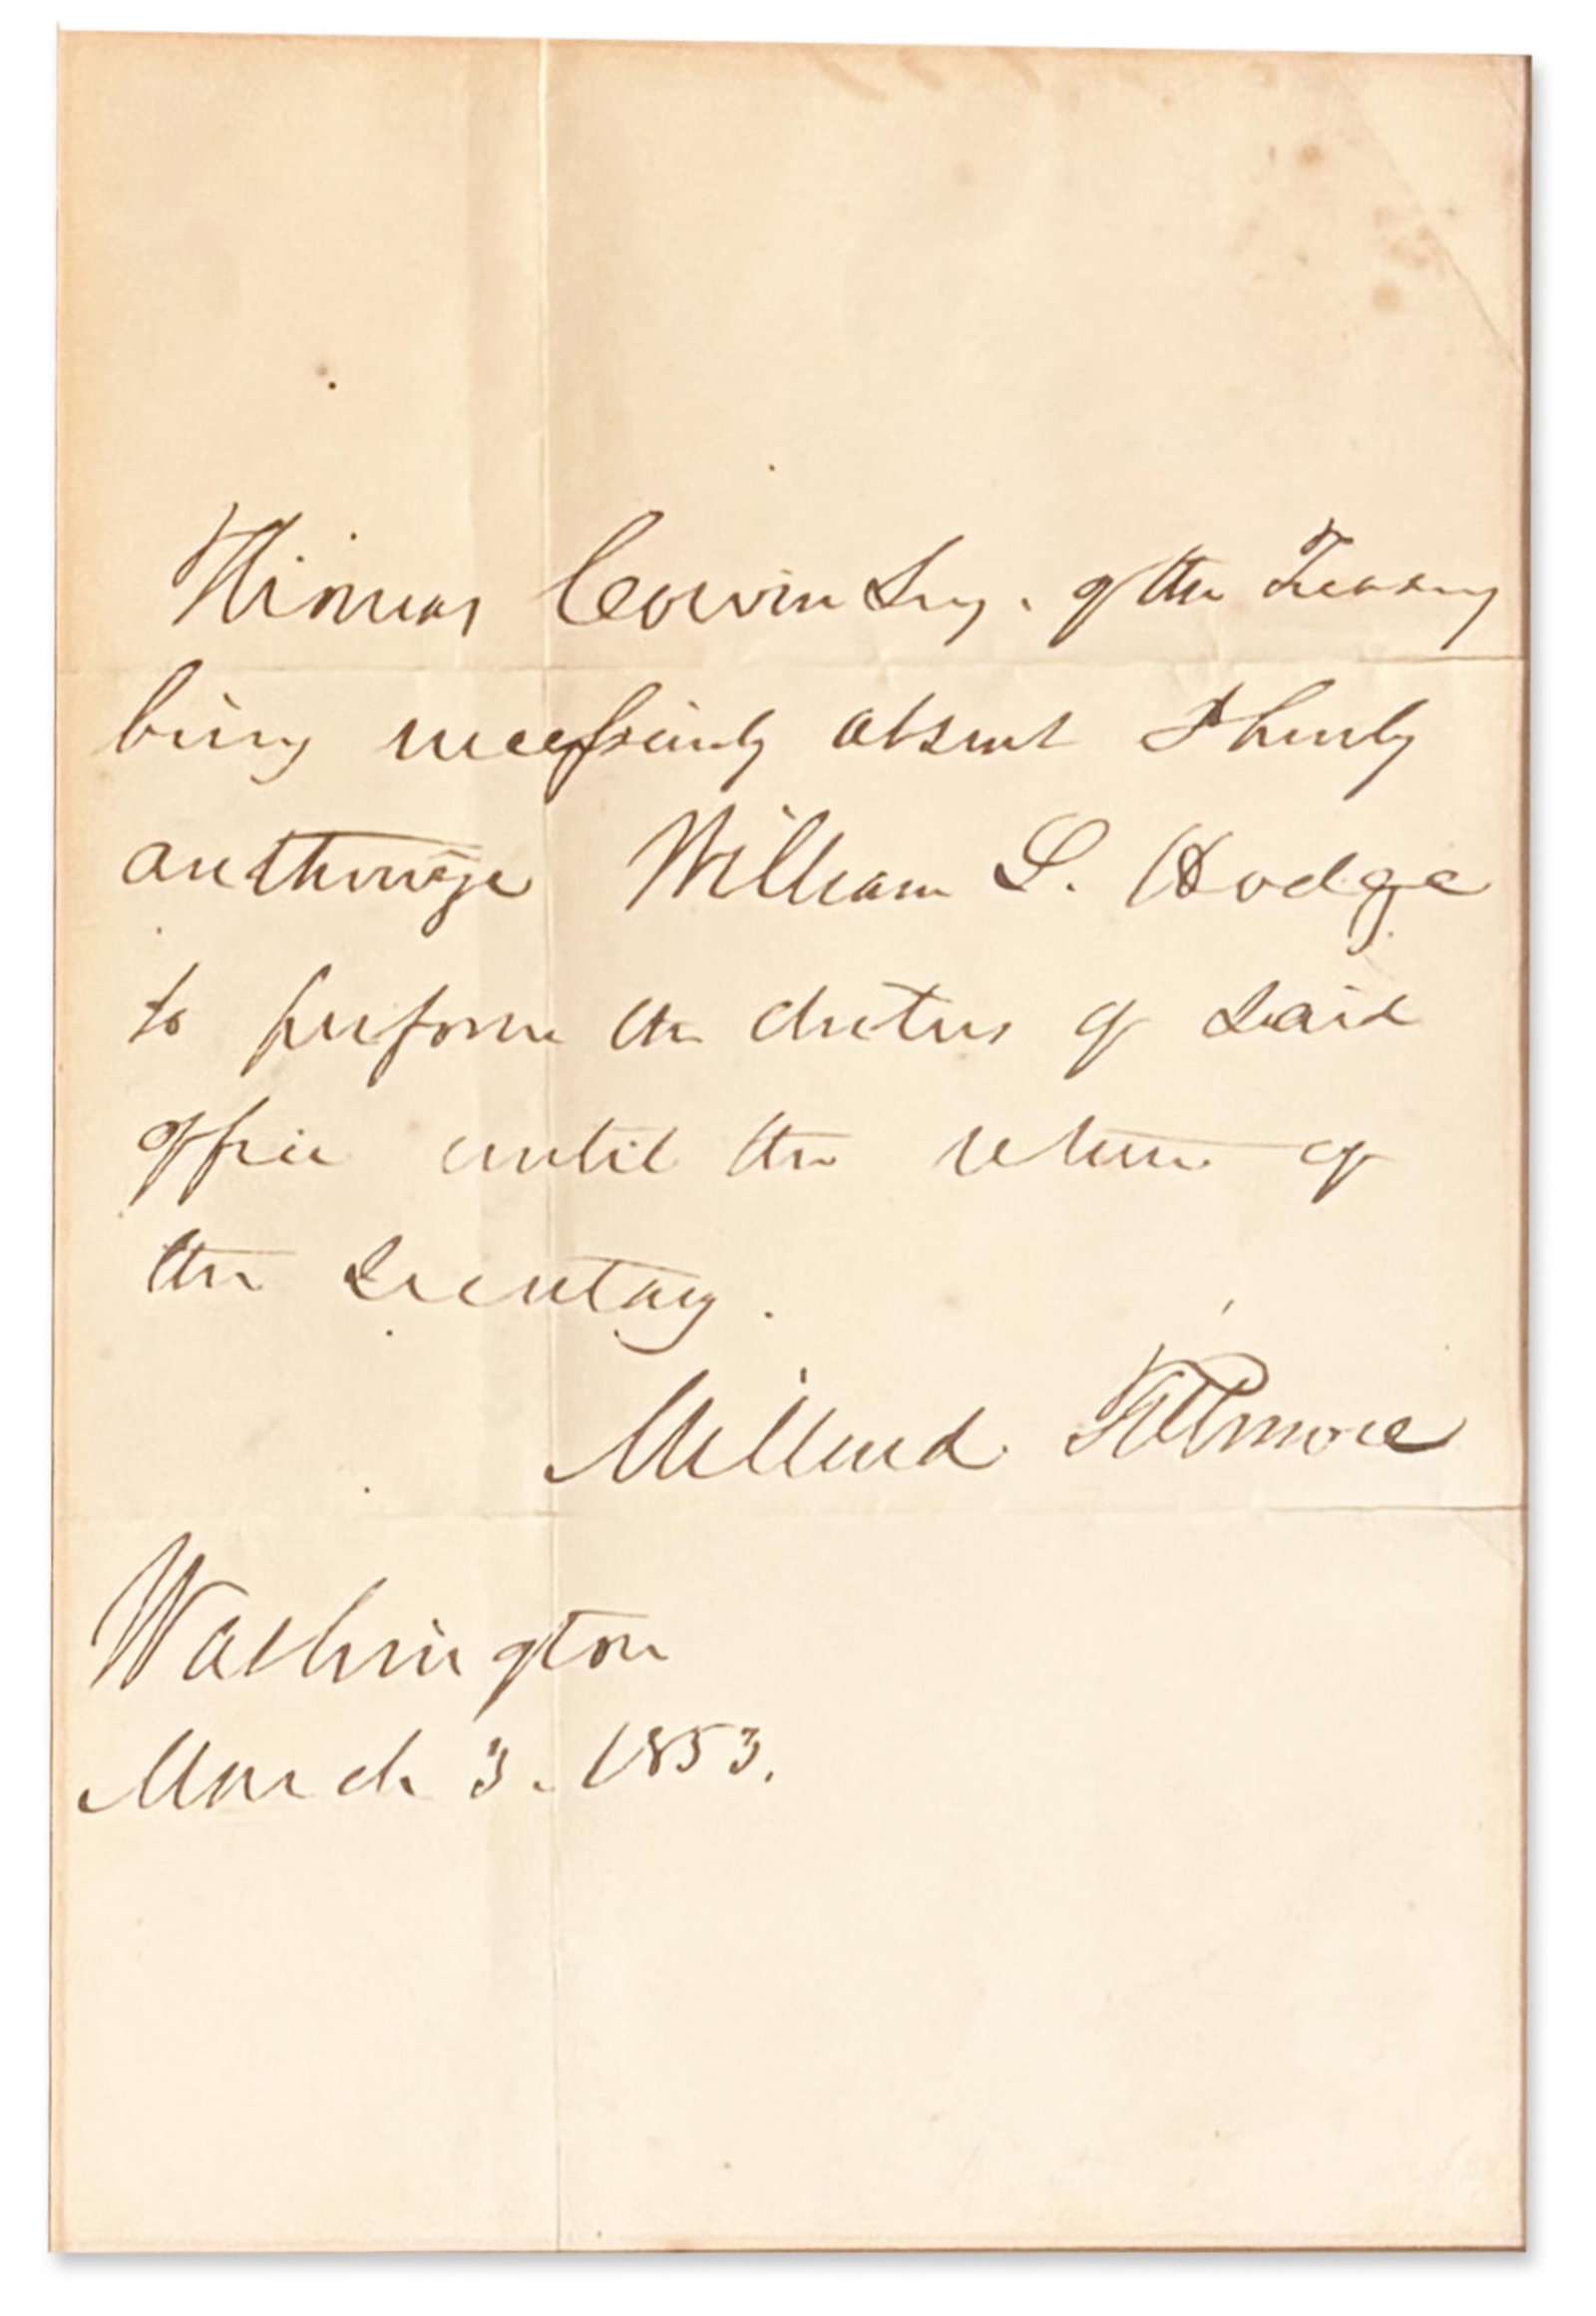 Thomas Corwin Secy. of the Treasury
being necessarily absent I hereby
authorize William L. Hodge
to perform the duties of said
office until the return of
the Secretary.
Millard Fillmore
Washington
March 3. 1853.